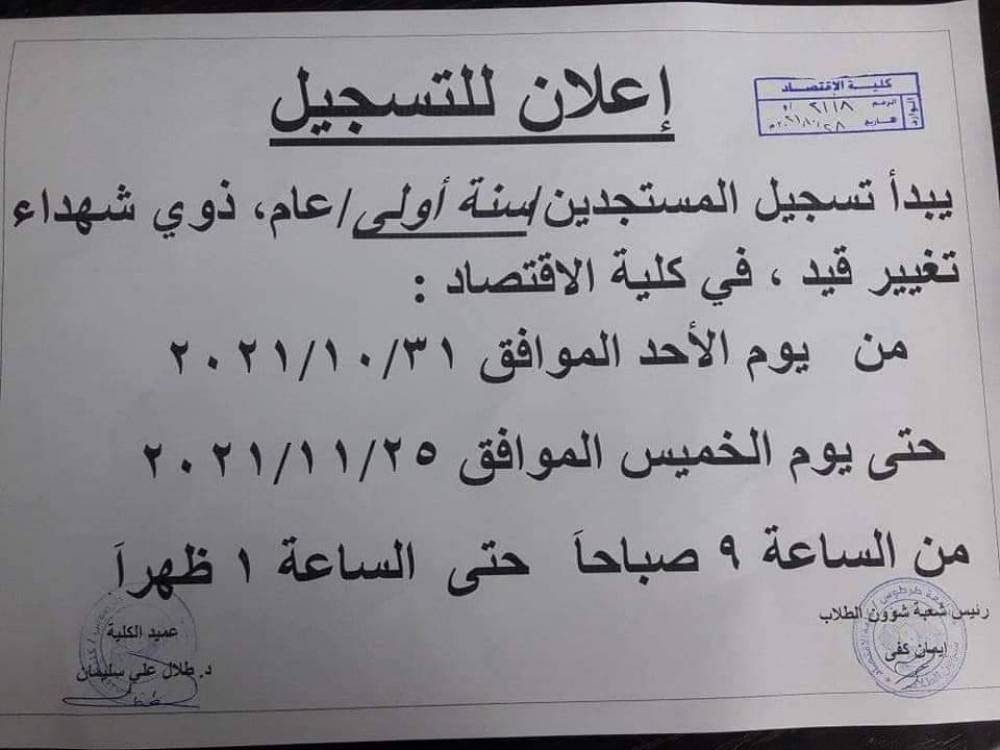 إعلان للتسجيل
كلية الإقتصاد
الرقم ٢١١٨
يبدأ تسجيل المستجدين/سنة أولى/عام، ذوي شهداء
تغيير قيد ، في كلية الاقتصاد :
من يوم الأحد الموافق ٢٠٢١/١٠/٣١
حتى يوم الخميس الموافق ٢٠٢١/١١/٢٥
من الساعة ٩ صباحاَ حتى الساعة ١ ظهراَ
رئيس شعبة شؤون الطلاب
إيمان كفى
عميد الكلية
د. طلال علي سليمان